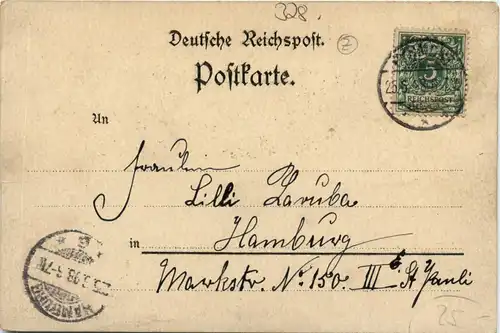 328.
Z
Deutsche Reichspost.
Postkarte.
5
REICHSPOST
An
Fräulein
Lilli Zaruba
in Hamburg
Markstr. No 150. III E. St Pauli
HAMBURG
25 -